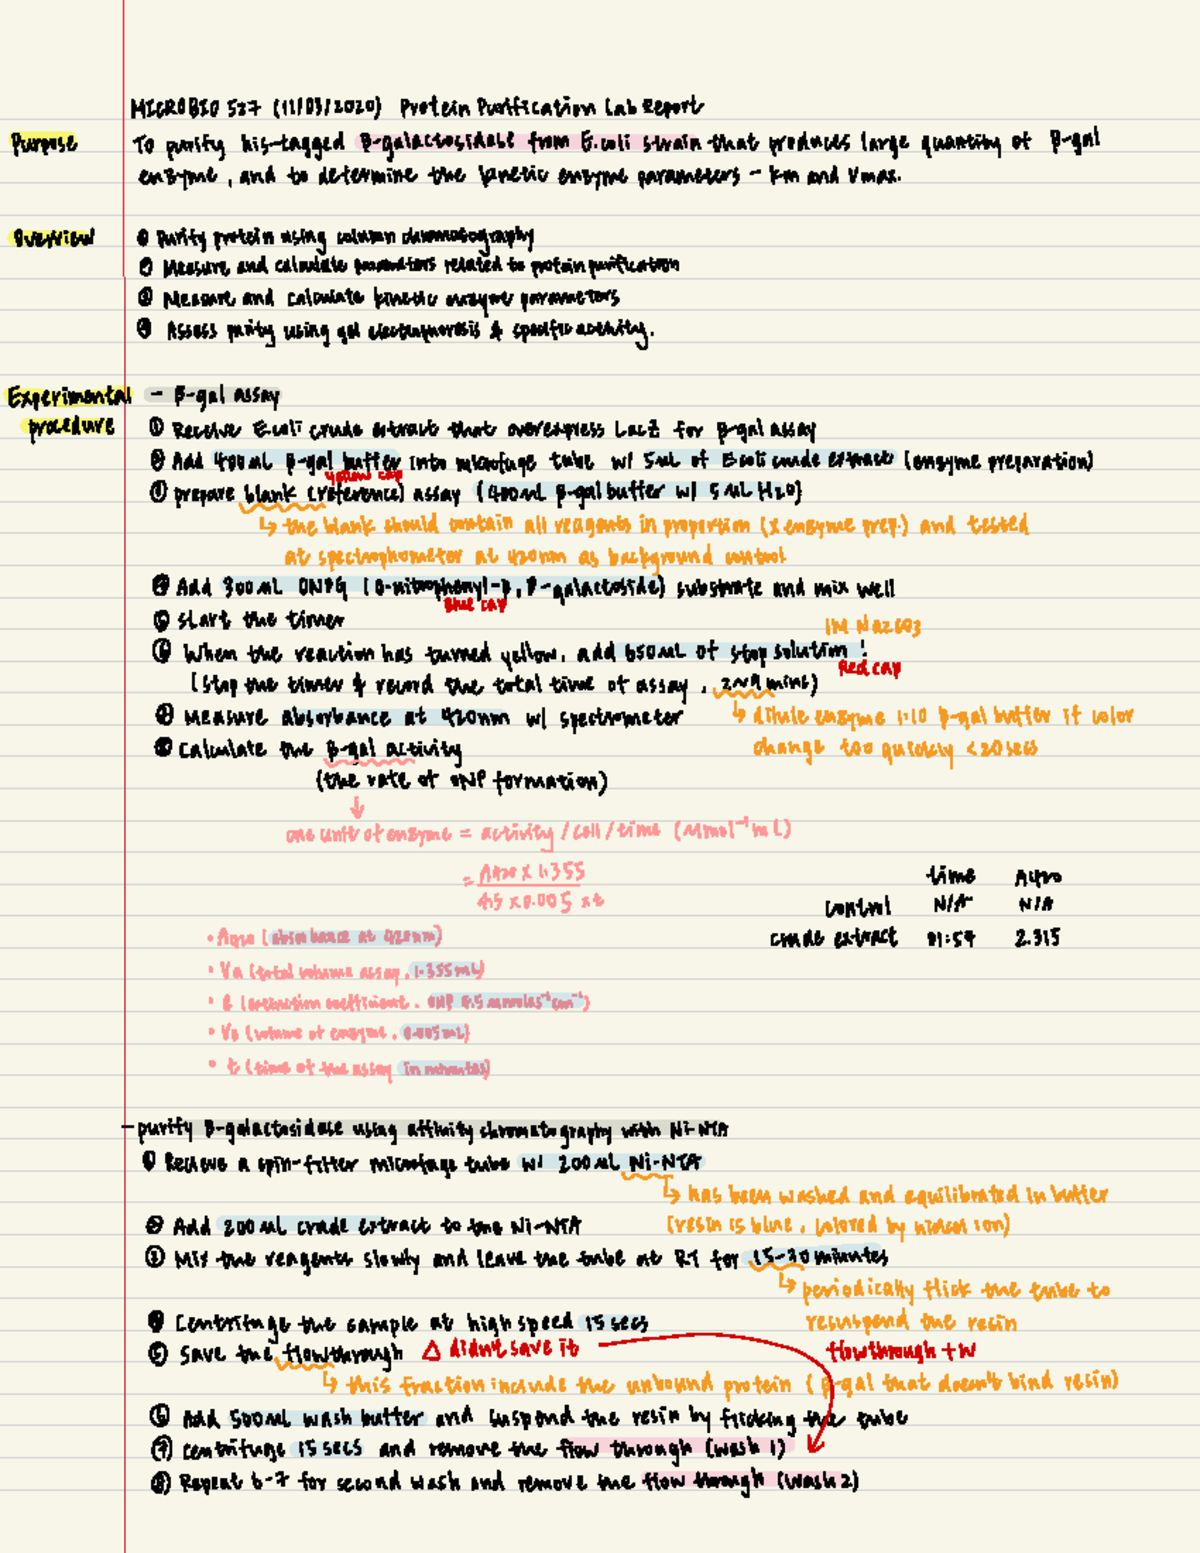 MICROBIO 527 (11/03/2020) Protein Purification Lab Report
Purpose To purify his-tagged β-galactosidase from E.coli strain that produces large quantity of β-gal
enzyme, and to determine the kinetic enzyme parameters - Km and Vmax.
Overview ① Purify protein using column chromatography
② Measure and calculate parameters related to protein purification
③ Measure and calculate kinetic enzyme parameters
④ Assess purity using gel electrophoresis & specific activity.
Experimental - β-gal assay
procedure ① Receive E.coli crude extract that overexpress LacZ for β-gal assay
② Add 400µL β-gal buffer into microfuge tube w/ 5µL of E.coli crude extract (enzyme preparation)
yellow cap
③ prepare blank (reference) assay (400µL β-gal buffer w/ 5µL H2O)
↳ the blank should contain all reagents in proportion (x enzyme prep.) and tested
at spectrophometer at 420nm as background control
④ Add 300µL ONPG (O-nitrophenyl-β, D-galactoside) substrate and mix well
Blue cap
⑤ start the timer
1M Na2CO3
⑥ When the reaction has turned yellow, add 650µL of stop solution!
Red cap
(stop the timer & record the total time of assay, 2~4 mins)
⑦ Measure absorbance at 420nm w/ spectrometer
↳ dilute enzyme 1:10 β-gal buffer if color
change too quickly <20secs
⑧ Calculate the β-gal activity
(the rate of ONP formation)
↓
one unit of enzyme = activity/cell/time (µmol⁻¹mL)
= A420 x 1.355
4.5 x 0.005 x t
time A420
control N/A N/A
crude extract 01:57 2.315
• A420 (absorbance at 420nm)
• Va (total volume assay, 1.355mL)
• ε (extinction coefficient, ONP 4.5 mmoles⁻¹cm⁻¹)
• Ve (volume of enzyme, 0.005mL)
• t (time of the assay in minutes)
- purify β-galactosidase using affinity chromatography with Ni-NTA
① Recieve a spin-filter microfuge tube w/ 200µL Ni-NTA
↳ has been washed and equilibrated in buffer
(resin is blue, colored by nickel ion)
② Add 200µL crude extract to the Ni-NTA
③ Mix the reagents slowly and leave the tube at RT for 15-30 minutes
↳ periodically flick the tube to
resuspend the resin
④ Centrifuge the sample at high speed 15 secs
⑤ Save the flowthrough △ didn't save it
flowthrough + W
↳ this fraction include the unbound protein (β-gal that doesn't bind resin)
⑥ Add 500µL wash buffer and suspend the resin by flicking the tube
⑦ centrifuge 15 secs and remove the flow through (wash 1)
⑧ Repeat 6-7 for second wash and remove the flow through (wash 2)